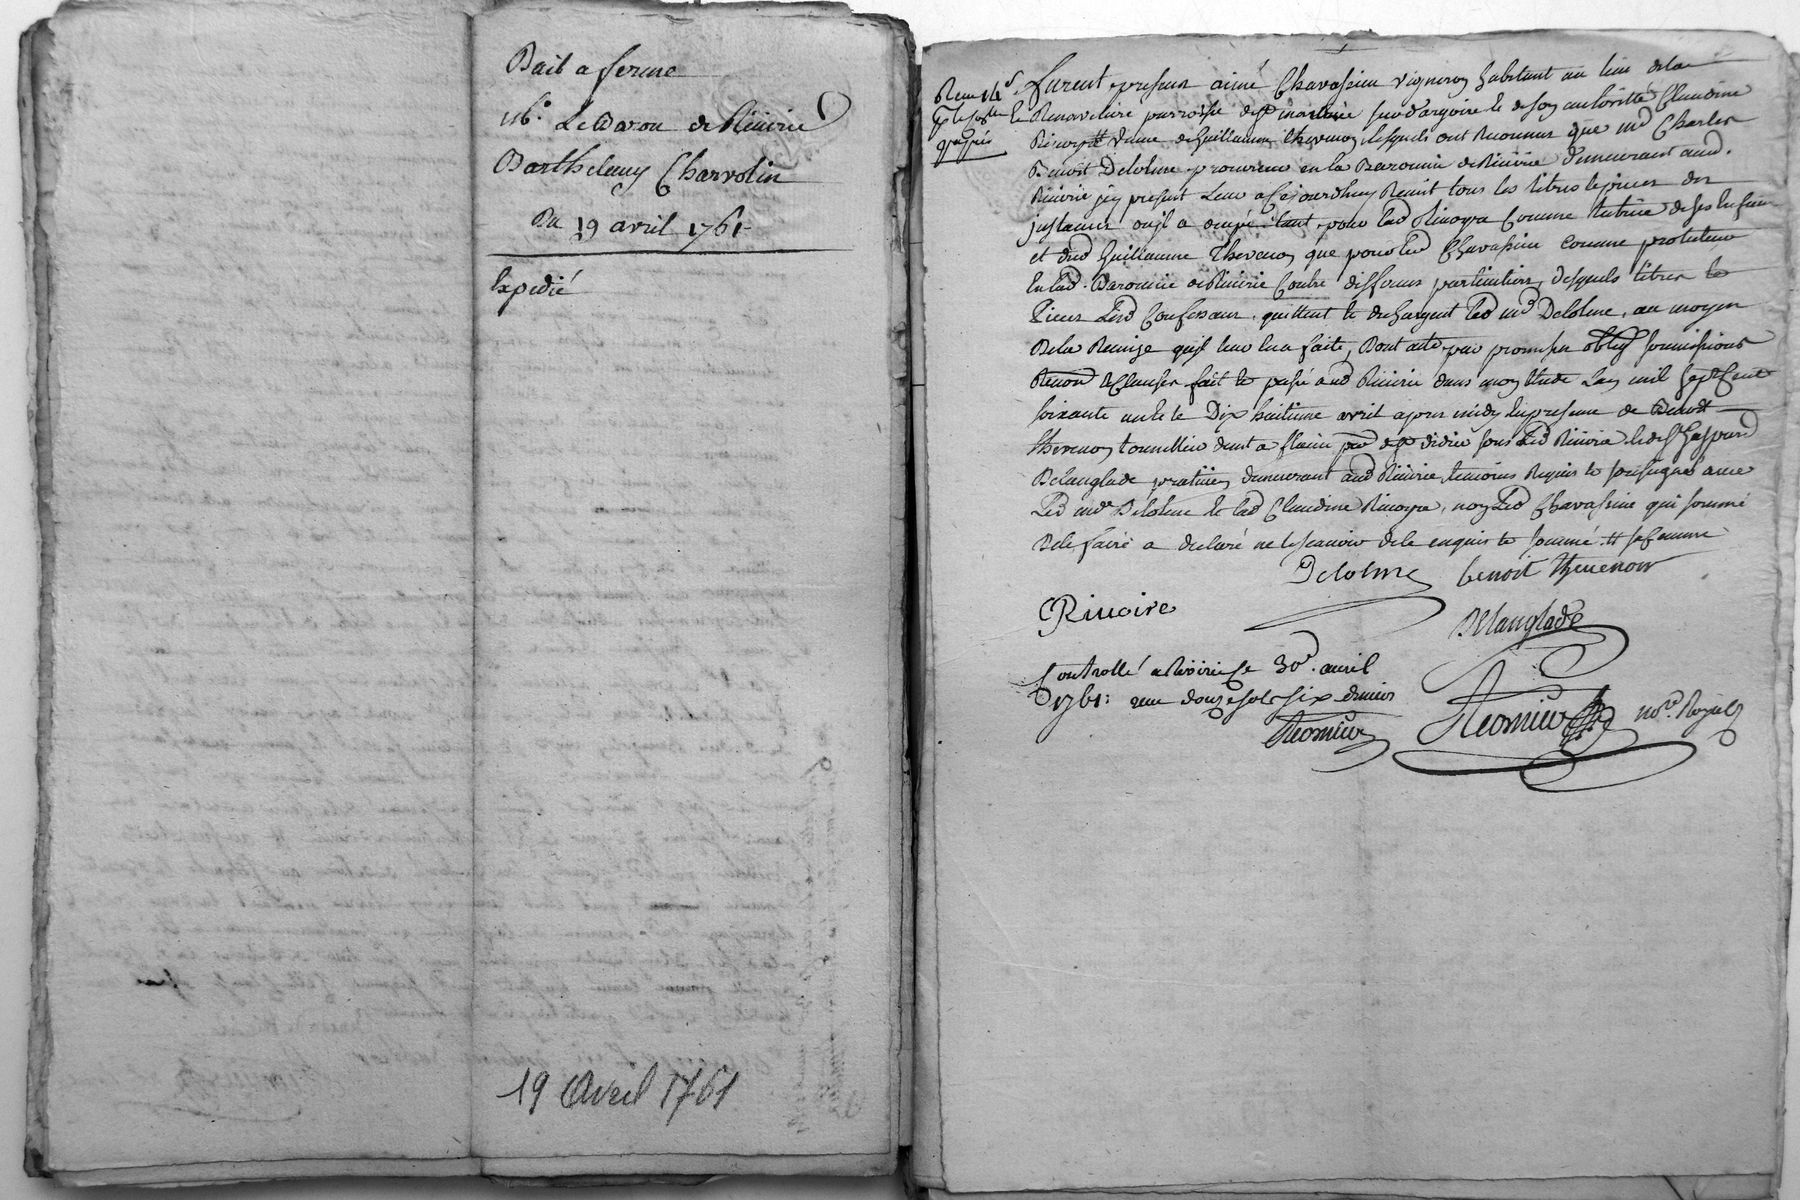 Bail a ferme
Mr. Le Baron de Riuirie
Barthelemy Charvolin
Du 19 avril 1761
Expedié
19 Avril 1761
furent presens aimé Chavassieu vigneron habitant au lieu dela
parroisse et de son authoritté Claudine
Rivoyre veuve de Guillaume thevenon lesquels ont Reconnu que md Charles
Benoit Delolme procureur en la Baronnie de Riuirie demeurant aud.
Riuirie jcy present Leur a Cejourdhuy Remit tous les titres et pieces des
jnstances ouil a ocupé tant pour lad Rivoyre Comme tutrice de ses Enfans
et dud Guillaume Thevenon que pour led Chavassieu comme protuteur
En lad. Baronnie de Riuirie Contre differens particuliers, desquels titres et
Pieces Lesd Confessans quittent et dechargent led md Delolme, au moyen
Dela Remize quil leur En a faite, Dont acte par promesses oblig soumissions
Renon & Clauses fait et passé aud Riuirie dans mon Etude Lan mil sept Cent
soixante un et le Dix huitieme avril apres midy En presence de Benoit
thevenon tonnellier dem.t a st didier sous Led Riuirie et de sr Gaspard
Delanglade praticien demeurant aud Riuirie temoins Requis et soussignés avec
Led md Delolme et lad Claudine Rivoyre, non Led Chavassieu qui sommé
Dele faire a declaré ne le scavoir dele enquis et sommé. # sa femme
Delolme benoit theuenon
Riuoire
Delanglade
Controllé a Riuirie Le 30e. avril
1761: reçu douze sols six deniers
no.re Royal